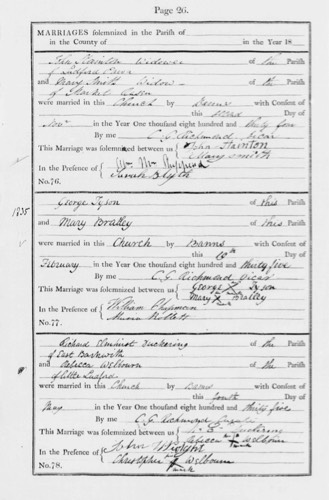 Page 26.
MARRIAGES solemnized in the Parish of
in the County of in the Year 18
John Stainton Widower of the Parish
of
and Mary Smith Widow of the Parish
of Market Rasen
were married in this Church by with Consent of
this Third Day of
Novr in the Year One thousand eight hundred and thirty four
By me C. G. Richmond Vicar
This Marriage was solemnized between us John Stainton
Mary Smith
In the Presence of Wm
Sarah Blyth
No. 76.
1835
George Tyson of this Parish
and Mary Bratley of this Parish
were married in this Church by Banns with Consent of
this 10th Day of
February in the Year One thousand eight hundred and thirty five
By me C. G. Richmond Vicar
This Marriage was solemnized between us George X Tyson
Mary X Bratley
In the Presence of William
No. 77.
Richard Elmhirst Duckering of the Parish
of East Barkwith
and Rebecca Welbourn of the Parish
of little
were married in this Church by Banns with Consent of
this fourth Day of
May in the Year One thousand eight hundred and thirty five
By me C. G. Richmond
This Marriage was solemnized between us Duckering
Rebecca X Welbourn
In the Presence of John Wright
Christopher X Welbourn
mark
No. 78.